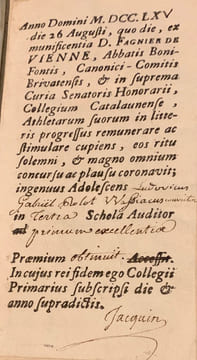 Anno Domini M. DCC. LXV
die 26 Augusti, quo die, ex
munificentia D. FAGNIER DE
VIENNE, Abbatis Boni-
Fontis, Canonici-Comitis
Brivatensis, & in suprema
Curia Senatoris Honorarii,
Collegium Catalaunense,
Athletarum suorum in litte-
ris progressus remunerare ac
stimulare cupiens, eos ritu
solemni, & magno omnium
concursu ac plausu coronavit;
ingenuus Adolescens Ludovicus
Gabriel
in Tertia Schola Auditor
ad primum excellentiæ
Præmium obtinuit. Accessit.
In cujus rei fidem ego Collegii
Primarius subscripsi die &
anno supradictis.
Jacquin